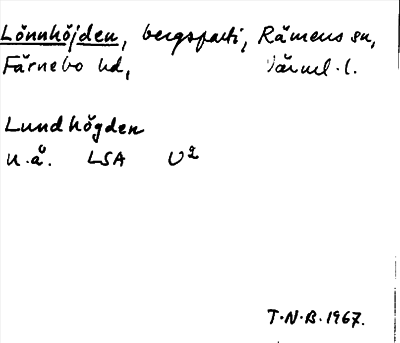 Lönnhöjden, bergsparti, Rämens sn,
Färnebo hd, Värml. l.
Lundhögden
u.å. LSA U2
T.N.B. 1967.